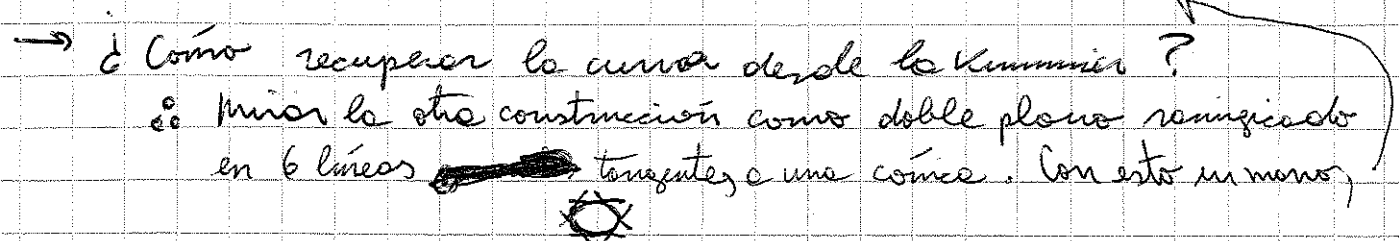 → ¿Cómo recuperar la curva desde la Kummer?
∴ Mirar la otra construcción como doble plano ramificado
en 6 líneas tangentes a una cónica. Con esto en mano,